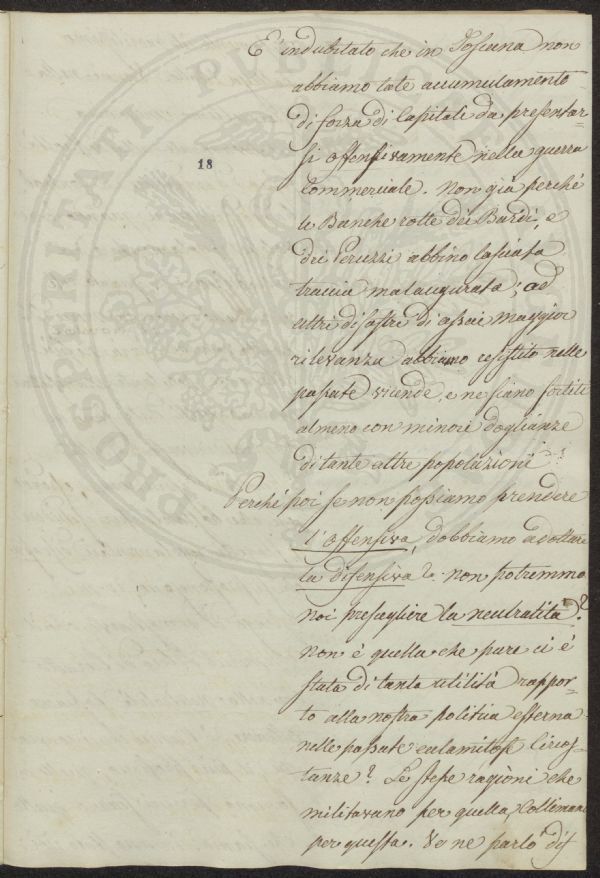 E' indubitato che in Toscana non
abbiamo tale accumulamento
di forza di Capitali da presentar-
si offensivamente nella guerra
18
Commerciale. Non già perché
le Banche rotte dei Bardi, e
dei Peruzzi abbino lasciata
traccia malaugurata; ad
altri disastri di assai maggior
rilevanza abbiamo resistito nelle
passate vicende, e ne siamo sortiti
almeno con minori doglianze
di tante altre popolazioni
Perché poi se non possiamo prendere
l'offensiva, dobbiamo adottare
la difensiva? non potremmo
noi presagliere la neutralità?
Non è quella che pure ci è
stata di tanta utilità rappor-
to alla nostra politica esterna
nelle passate calamitose Circos-
tanze? Le stesse ragioni che
militavano per quella, Collimano
per questa. Ve ne parlò dis
PROSPERITATI PUBL